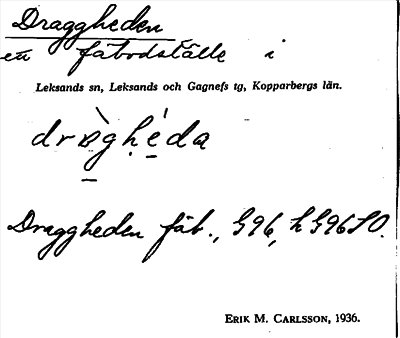 Draggheden
en fäbodställe i
Leksands sn, Leksands och Gagnefs tg, Kopparbergs län.
Draggheden fäb., G96, h G96SO.
ERIK M. CARLSSON, 1936.